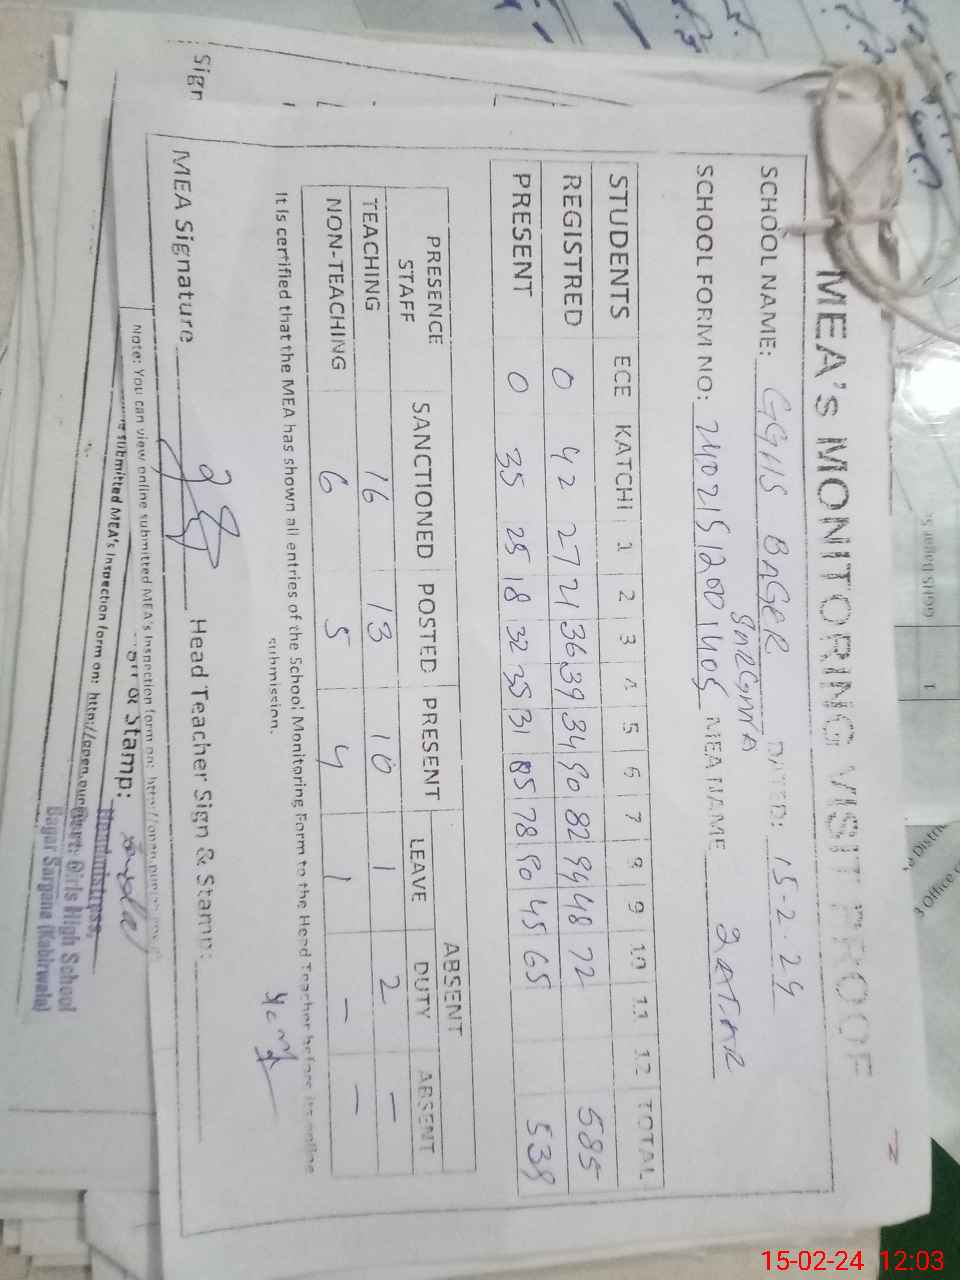 MEA's MONITORING VISIT PROOF
SCHOOL NAME: GGHS BAGER SARGANA DATED: 15-2-24
SCHOOL FORM NO: MEA NAME
STUDENTS ECE KATCHI 1 2 3 4 5 6 7 8 9 10 11 12 TOTAL
REGISTRED 0 42 27 21 36 39 34 90 82 94 48 72 585
PRESENT 0 35 25 18 32 35 31 85 78 90 45 65 539
PRESENCE STAFF SANCTIONED POSTED PRESENT ABSENT
LEAVE DUTY ABSENT
TEACHING 16 13 10 1 2 –
NON-TEACHING 6 5 4 1 – –
It Is certified that the MEA has shown all entries of the School Monitoring Form to the Head Teacher before its online
submission.
MEA Signature Head Teacher Sign & Stamp:
Note: You can view online submitted MEA's Inspection form on:
submitted MEA's Inspection form on:
Stamp:
Headmistress,
Govt: Girls High School
Bagar Sargana (Kabirwala)
Sign
GGHS Bagar
1
15-02-24 12:03